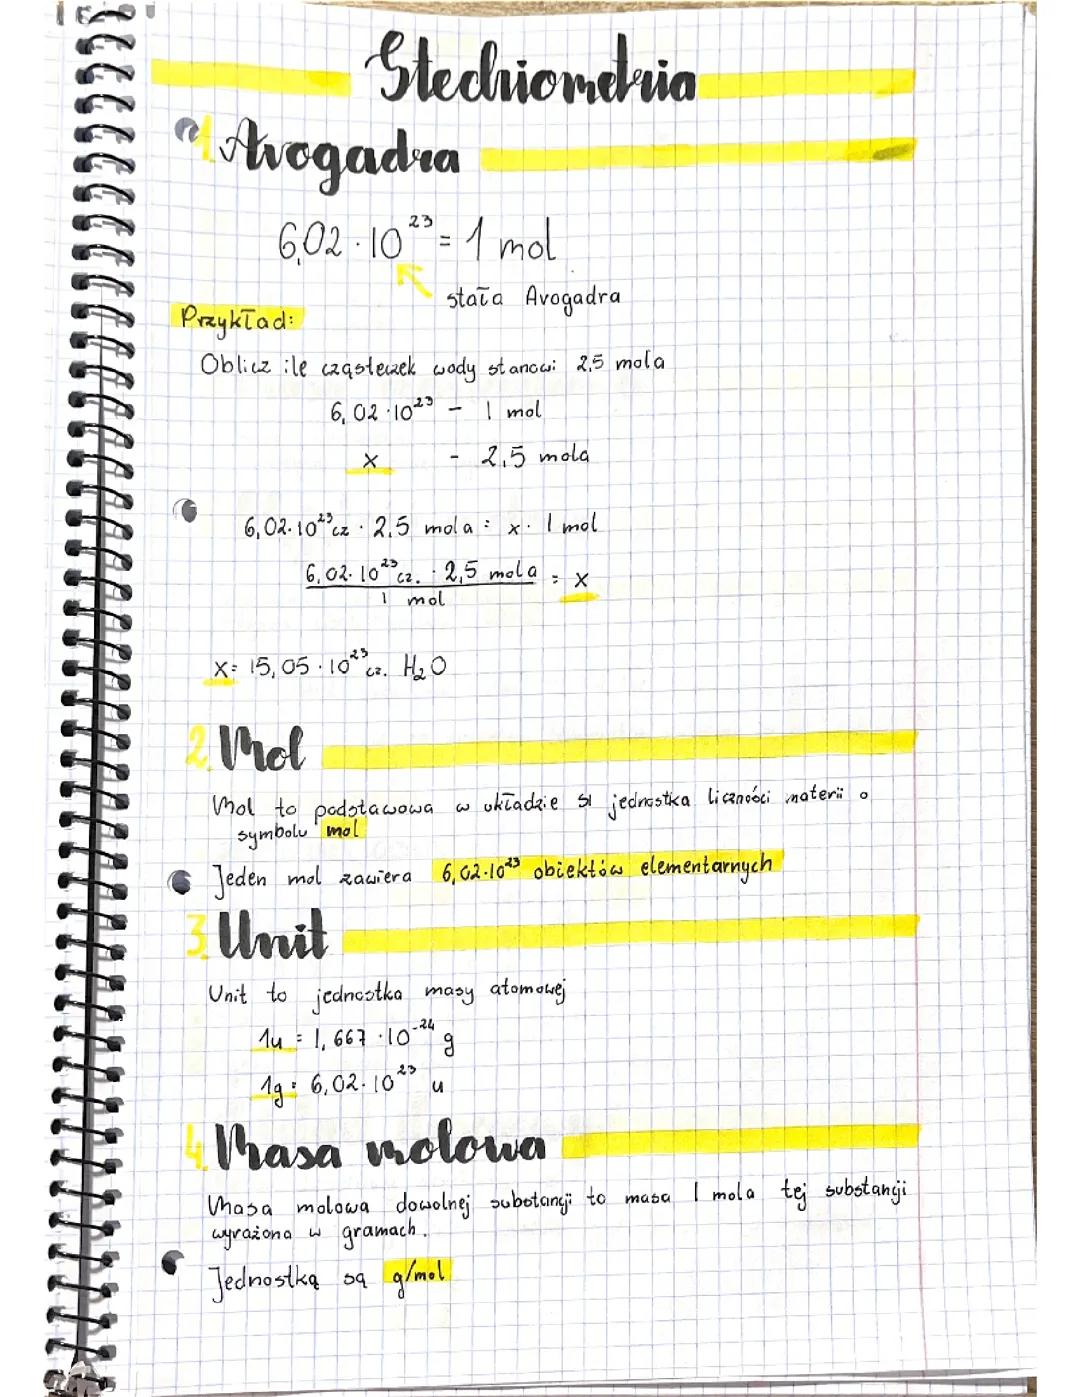 Stechiometria
1. Avogadra
6,02 · 10²³ = 1 mol
stała Avogadra
Przykład:
Oblicz ile cząsteczek wody stanowi 2,5 mola
6,02 · 10²³ - 1 mol
x - 2,5 mola
6,02 · 10²³ cz · 2,5 mola = x · 1 mol
6,02 · 10²³ cz. · 2,5 mola = x
1 mol
x = 15,05 · 10²³ cz. H₂O
2. Mol
Mol to podstawowa w układzie SI jednostka liczności materii o
symbolu mol
Jeden mol zawiera 6,02·10²³ obiektów elementarnych
3. Unit
Unit to jednostka masy atomowej
1u = 1,667 · 10⁻²⁴ g
1g = 6,02 · 10²³ u
4. Masa molowa
Masa molowa dowolnej substancji to masa 1 mola tej substancji
wyrażona w gramach.
Jednostką są g/mol